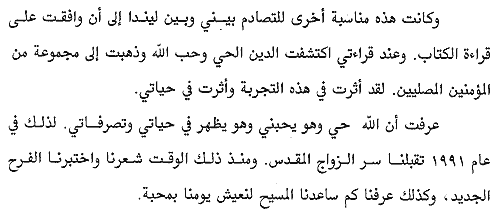 وكانت هذه مناسبة أخرى للتصادم بيني وبين ليندا إلى أن وافقت على
قراءة الكتاب. وعند قراءتي اكتشفت الدين الحي وحب الله وذهبت إلى مجموعة من
المؤمنين المصليين. لقد أثرت في هذه التجربة وأثرت في حياتي.
عرفت أن الله حي وهو يحبني وهو يظهر في حياتي وتصرفاتي. لذلك في
عام ١٩٩١ تقبلنا سر الزواج المقدس. ومنذ ذلك الوقت شعرنا واختبرنا الفرح
الجديد، وكذلك عرفنا كم ساعدنا المسيح لنعيش يومنا بمحبة.